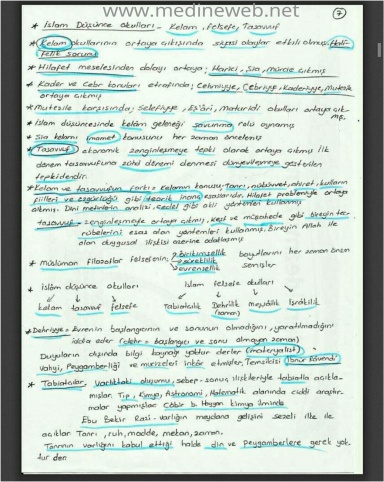 www.medineweb.net
7
* İslam Düşünce Okulları - Kelam, Felsefe, Tasavvuf
* Kelam okullarının ortaya çıkışında siyasi olaylar etkili olmuş. Halifelik sorunu
* Hilafet meselesinden dolayı ortaya; Harici, Şia, mürcie çıkmış
* Kader ve Cebr konuları etrafında; Cehmiyye, Cebriyye, Kaderiyye, Mutezile
ortaya çıkmış
* Mutezile karşısında; Selefiyye, Eş'ari, Maturidi okulları ortaya çıkmış.
* İslam düşüncesinde kelâm geleneği savunma rolü oynamış
* Şia kelamı imamet konusunu her zaman öncelemiş
* Tasavvuf ekonomik zenginleşmeye tepki olarak ortaya çıkmış İlk
dönem tasavvufuna zühd dönemi denmesi dünyevileşmeye gösterilen
tepkidendir.
* Kelam ve tasavvufun farkı = Kelamın konusu, Tanrı, nübüvvet, ahiret, kulların
fiilleri ve özgürlüğü gibi teorik inanç esaslarıdır. Hilafet problemiyle ortaya
çıkmış. Dini metinlerin analizi, cedel gibi akli yöntemleri kullanmış
tasavvuf = zenginleşmeyle ortaya çıkmış, keşf ve müşahede gibi bireyin tec-
rübelerini esas alan yöntemleri kullanmış. Bireyin Allah ile
olan duygusal ilişkisi üzerine odaklaşmış
* Müslüman filozoflar felsefenin; → birikimsellik
→ süreklilik boyutlarını her zaman önem
→ evrensellik semişler
* İslâm düşünce okulları İslam felsefe okulları
kelam tasavvuf felsefe Tabiatçılık Dehrilik (zaman) meşşailik İşrakilik
* Dehriyye = Evrenin başlangıcının ve sonunun olmadığını, yaratılmadığını
iddia eder (dehr = başlangıcı ve sonu olmayan zaman)
Duyuların dışında bilgi kaynağı yoktur derler (materyalist)
Vahyi, Peygamberliği ve mucizeleri inkâr etmişler, Temsilcisi İbnür Ravendi
* Tabiatçılar Varlıktaki oluşumu, sebep-sonuç ilişkileriyle tabiatla açıkla-
mışlar. Tıp, Kimya, Astronomi, Matematik alanında ciddi araştır-
malar yapmışlar Câbir b. Hayyan kimya ilminde
Ebu Bekir Razi - varlığın meydana gelişini 5 ezeli ilke ile
açıklar Tanrı, ruh, madde, mekan, zaman.
Tanrının varlığını kabul ettiği halde din ve Peygamberlere gerek yok-
tur der